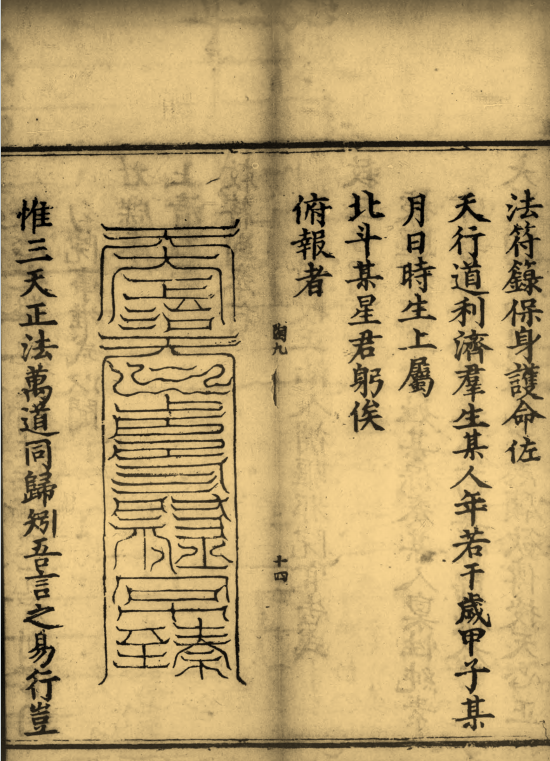 法符籙保身護命佐
天行道利濟羣生某人年若干歲甲子某
月日時生上屬
北斗某星君躬俟
俯報者
陶九
十四
惟三天正法萬道同歸矧吾言之易行豈